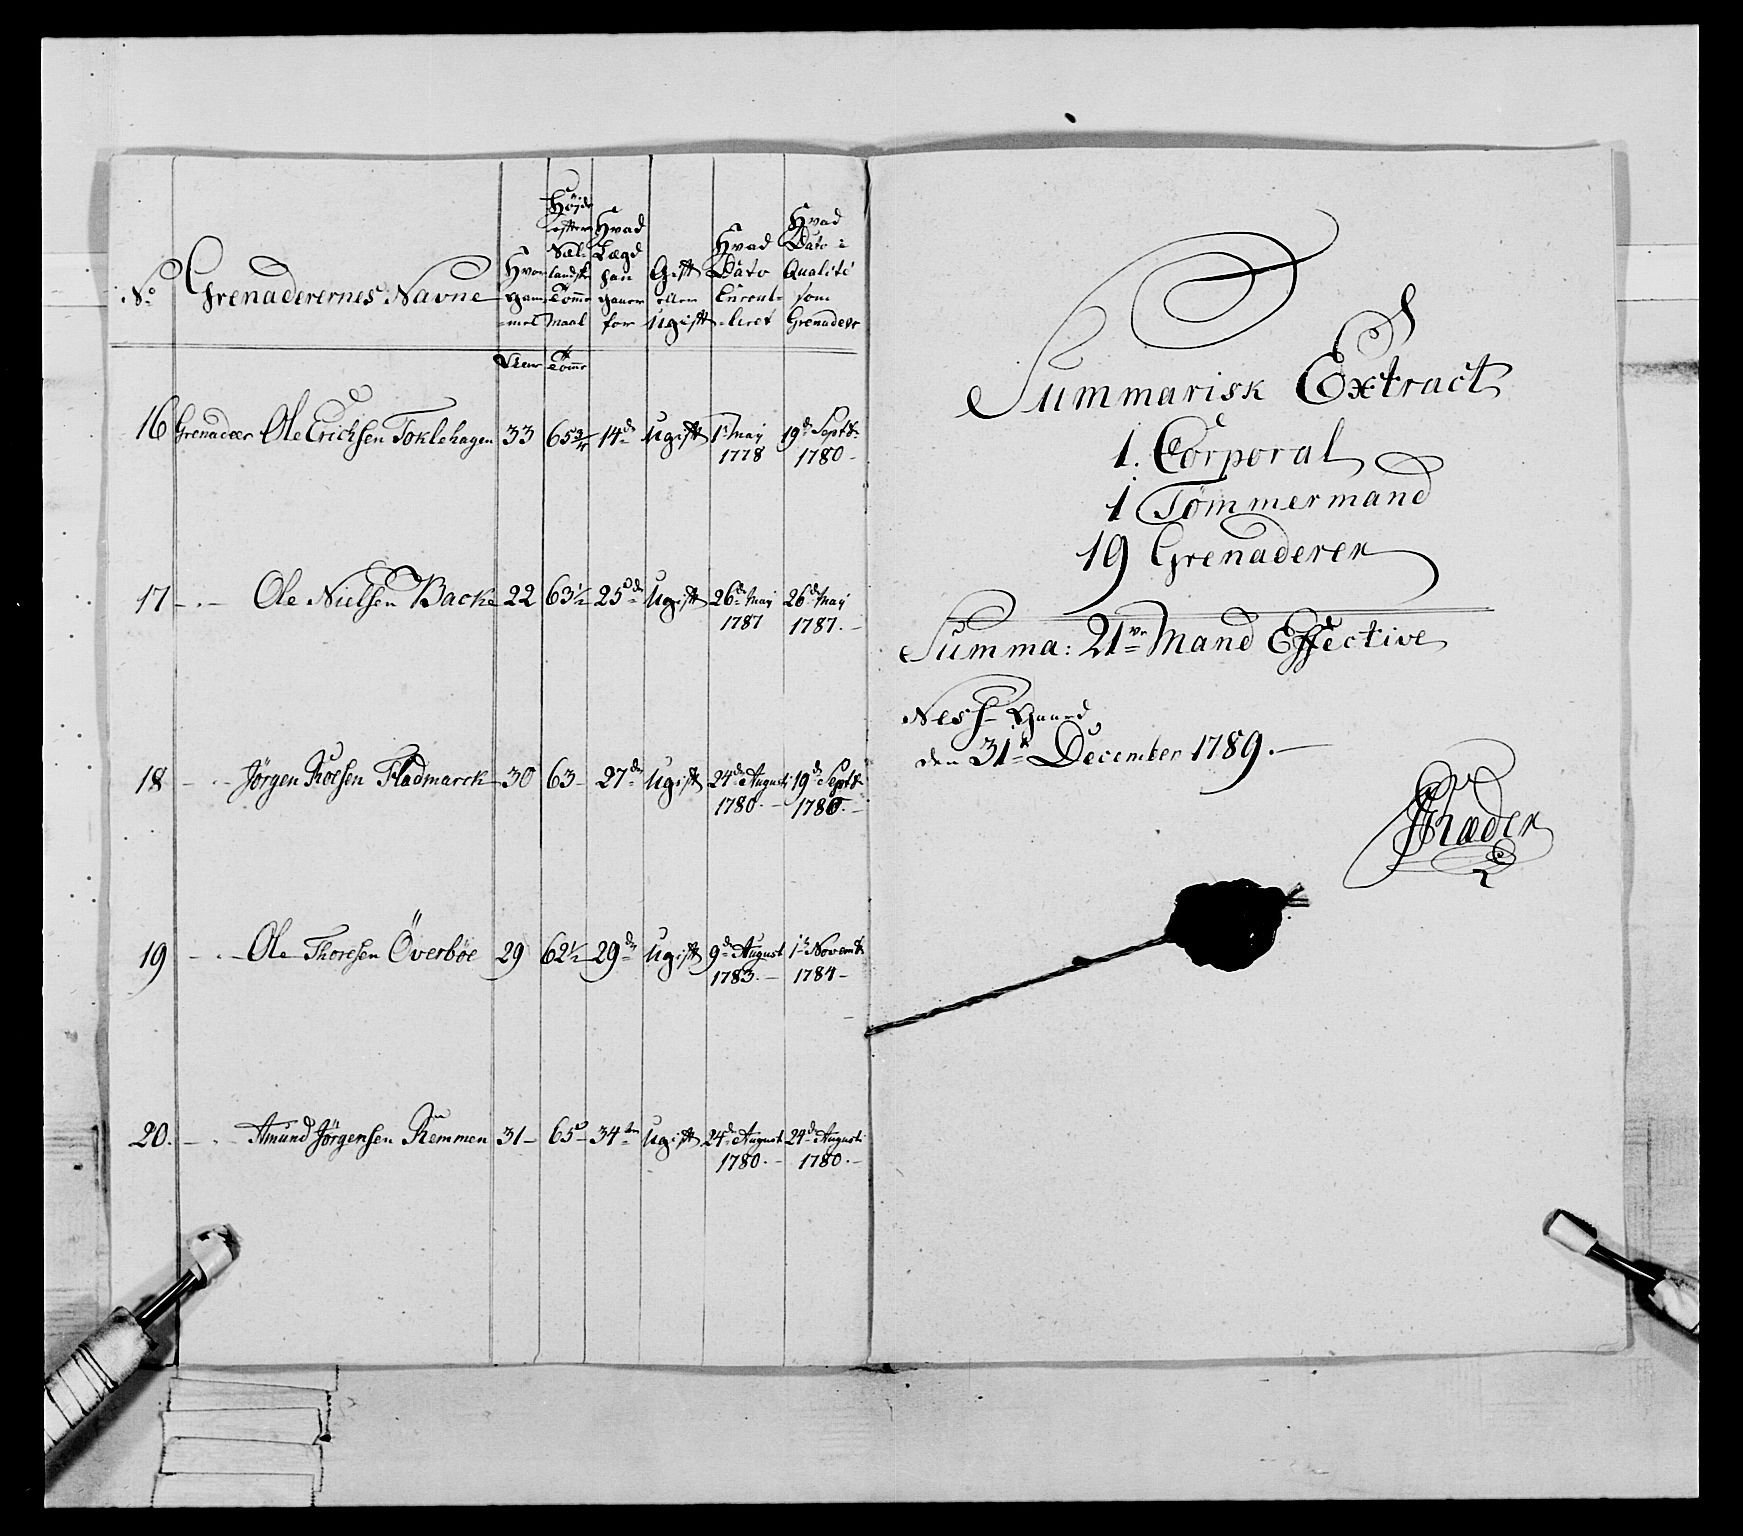 No Grenaderernes Navne | Hvor gam-mel | Højde efter Siel-landsk Tomme Maal | Hvad Lægd han gaaer for | Gift eller ugift | Hvad Dato Enroul-leret | Hvad Dato i Qualité som Grenadeer
Aar Tomr
16 Grenadeer Ole Erichsen Toklehagen 33 65 3/4 14de ugift 1te May 1778 19de Septbr 1780
17 Ole Nielsen Backe 22 63 1/2 25de ugift 26de May 1787 26de May 1787.
18 Jörgen Roesen Fladmarck 30 63 27de ugift 24de Augusti 1780. 19de Septbr 1780.
19 Ole Thoresen Överböe 29 62 1/2 29de ugift 9de August 1783. 1te Novembr 1784
20. Amund Jörgensen Remmen 31 65 34te ugift 24de Augusti 1780. 24de Augusti 1780.
Summarisk Extract
1. Corporal
1 Tömmermand
19 Grenaderer
Summa: 21ve Mand Effective
Ness Gaard
den 31te December 1789.